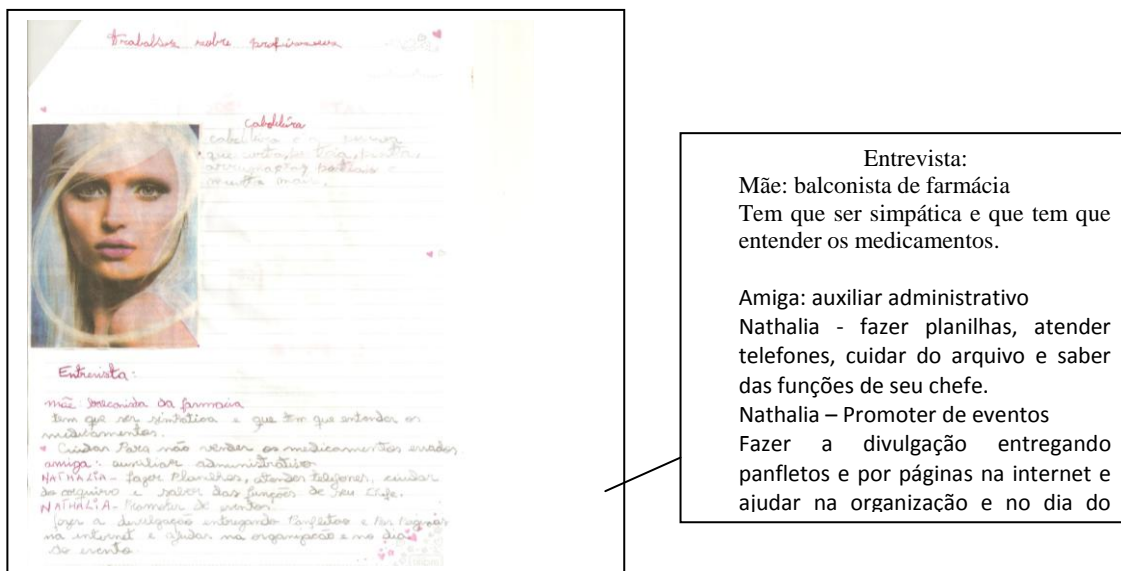 Trabalho sobre profissoes
Cabeleleira
que corta, faz
muito mais.
Entrevista:
mãe: balconista da farmacia
tem que ser simpatica e que tem que entender os
medicamentos.
Cuidar Para não vender os medicamentos errados.
amiga: auxiliar administrativo
NATHALIA - fazer Planilhas, atender telefones, cuidar
do arquivo e saber das funções de Seu Chefe.
NATHALIA - Promoter de eventos
fazer a divulgação entregando Panfletos e Por Paginas
na internet e ajudar na organização e no dia
do evento
Entrevista:
Mãe: balconista de farmácia
Tem que ser simpática e que tem que
entender os medicamentos.
Amiga: auxiliar administrativo
Nathalia - fazer planilhas, atender
telefones, cuidar do arquivo e saber
das funções de seu chefe.
Nathalia – Promoter de eventos
Fazer a divulgação entregando
panfletos e por páginas na internet e
ajudar na organização e no dia do